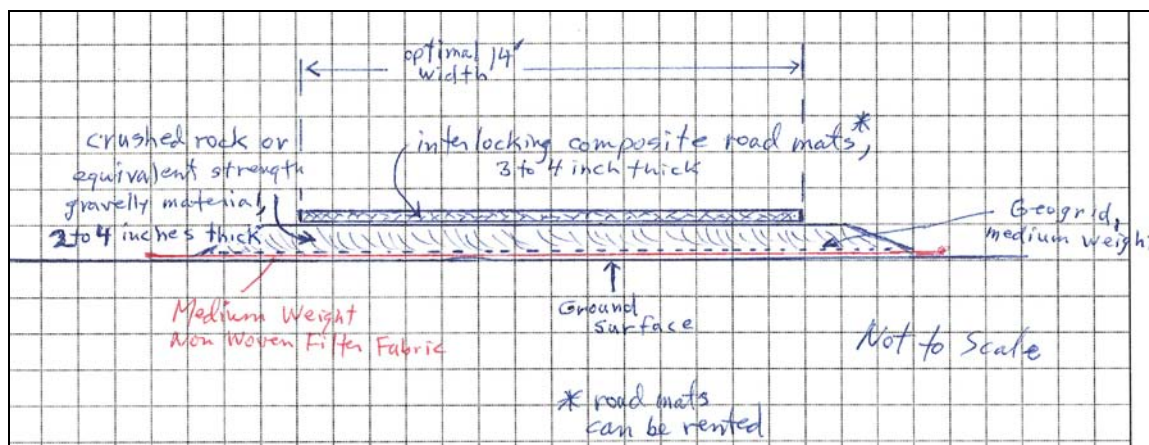 optimal 14'
width
crushed rock or
equivalent strength
gravelly material,
2 to 4 inches thick
interlocking composite road mats,*
3 to 4 inch thick
Geogrid,
medium weight
Medium Weight
Non Woven Filter Fabric
Ground
surface
Not to Scale
* road mats
can be rented